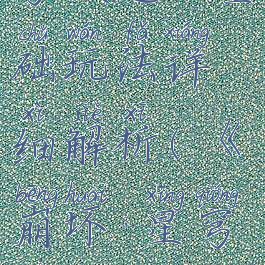 chǔ wán fǎ xiáng
础玩法详
xì jiě xī
细解析(《
bēng huài xīng qióng
崩坏 星穹